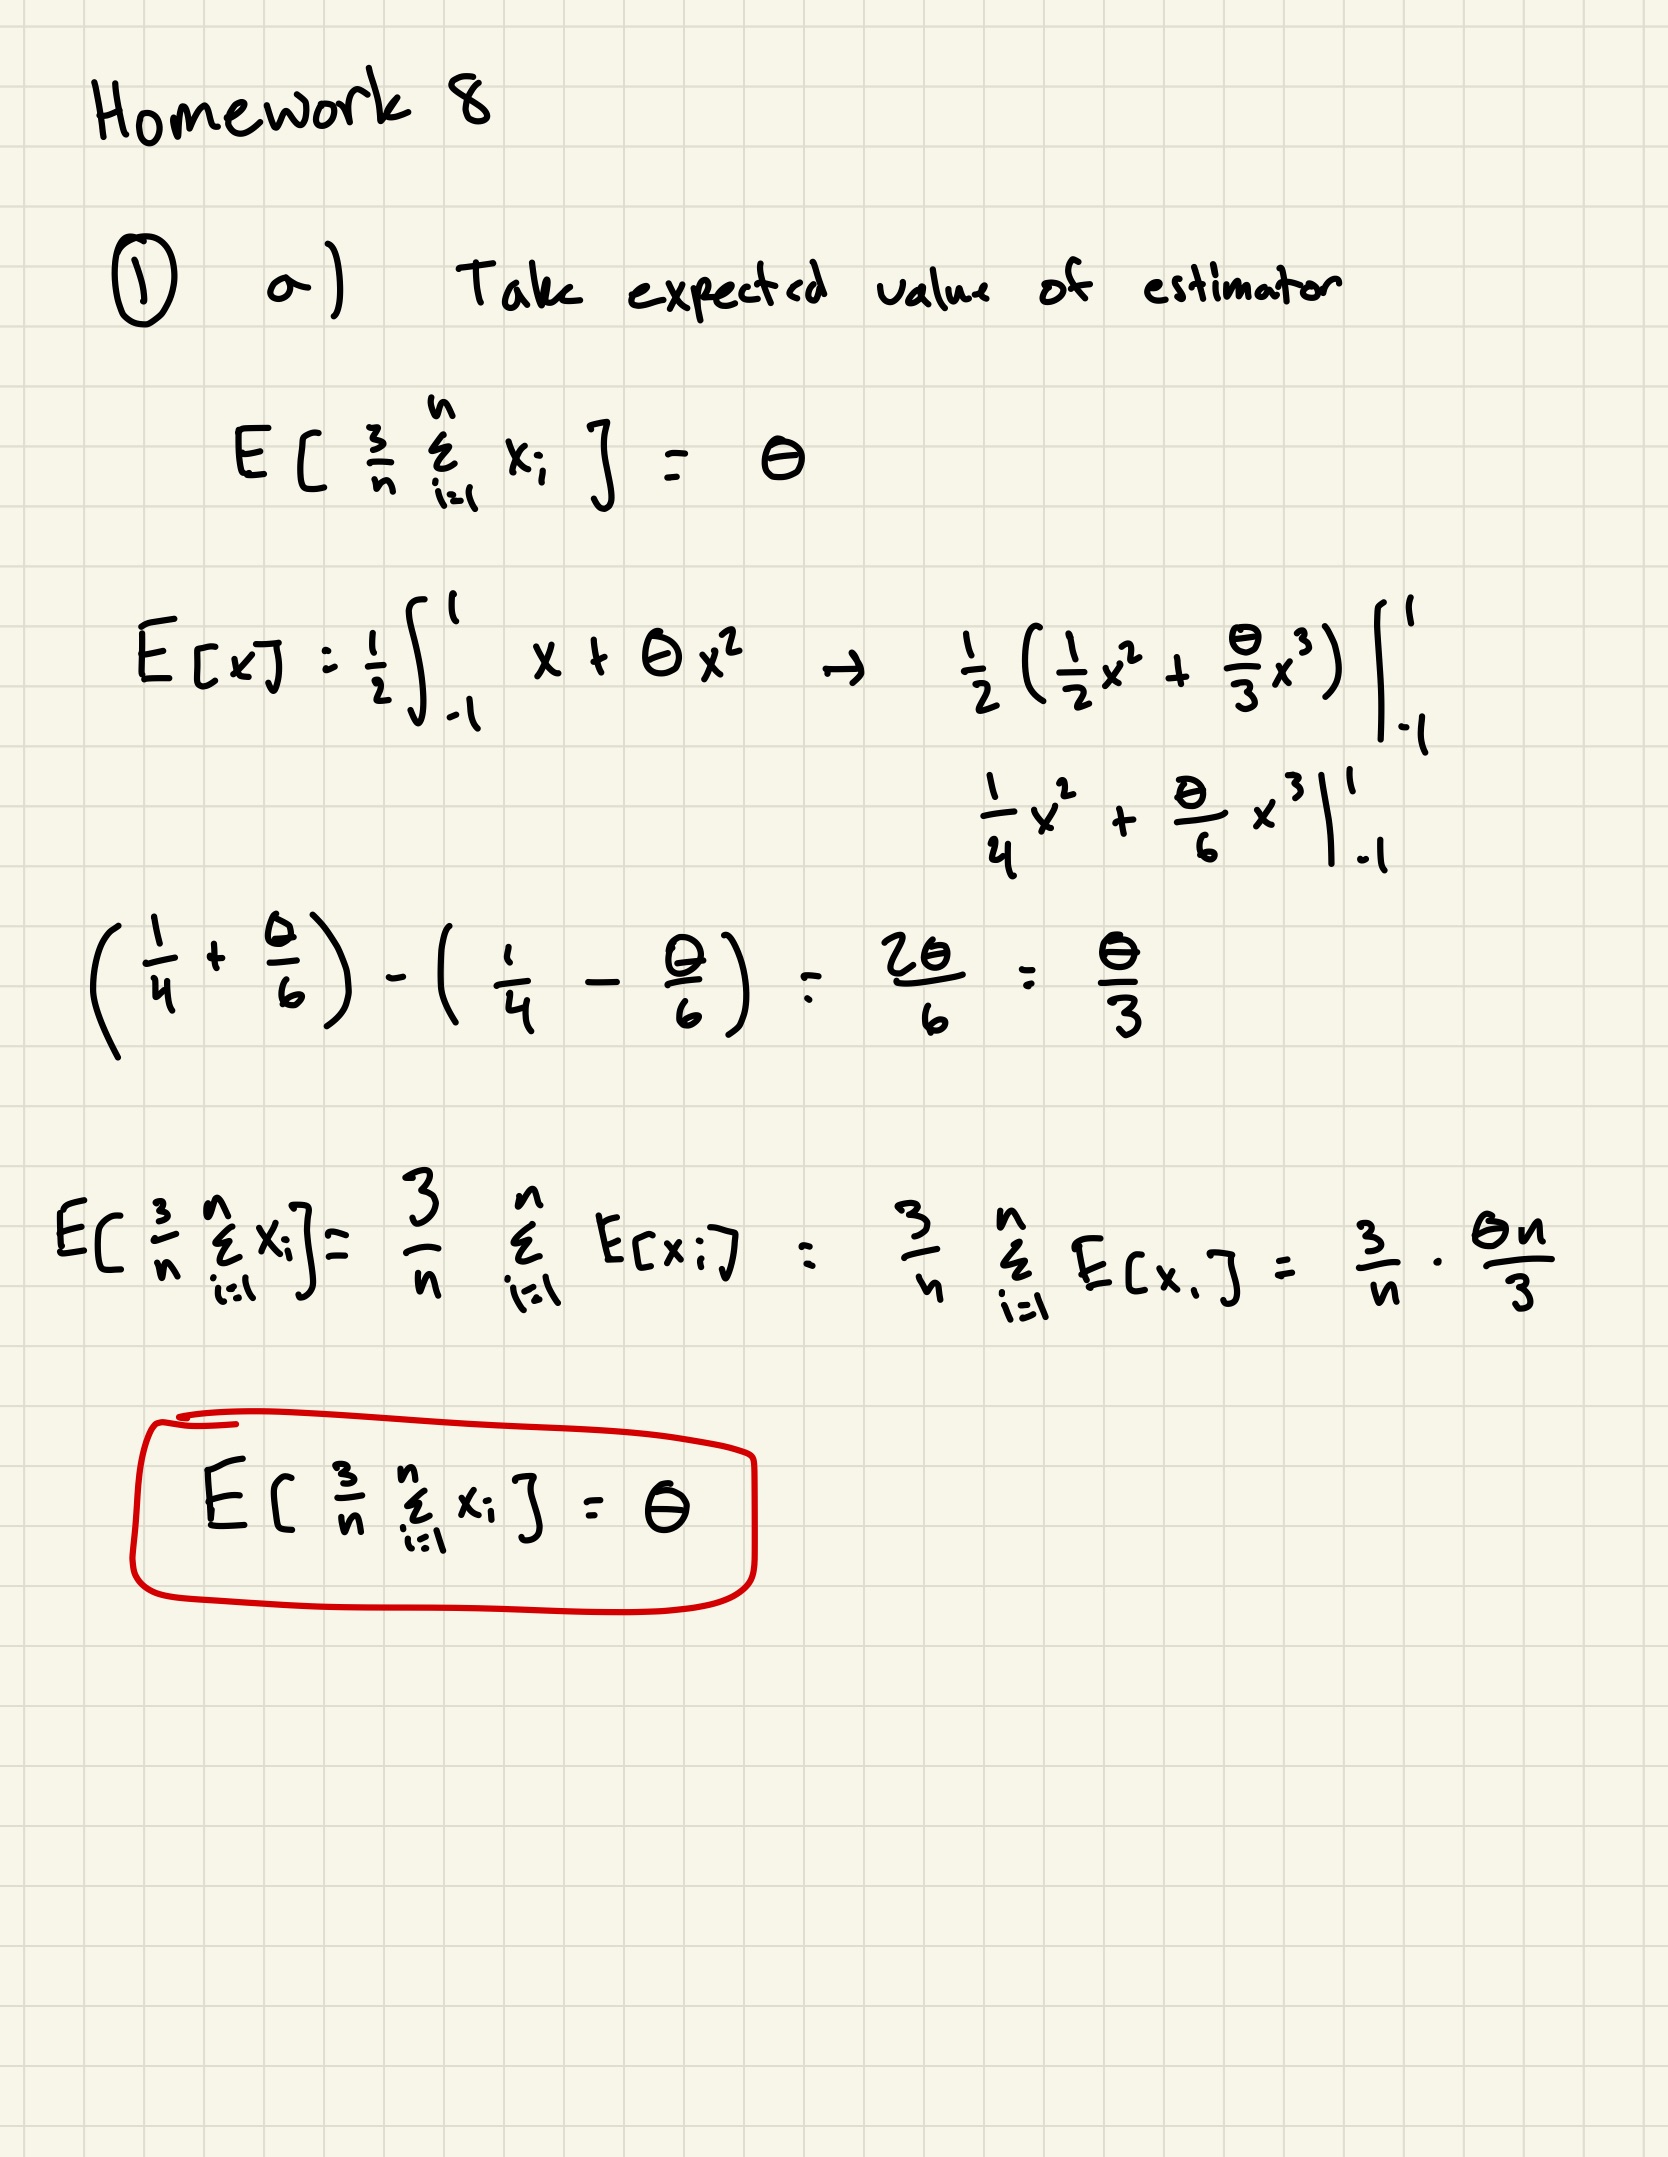 Homework 8
① a) Take expected value of estimator
E[ 3/n Σ_{i=1}^{n} x_i ] = θ
E[x] = 1/2 ∫_{-1}^{1} x + θx² → 1/2 (1/2 x² + θ/3 x³) |_{-1}^{1}
1/4 x² + θ/6 x³ |_{-1}^{1}
(1/4 + θ/6) - (1/4 - θ/6) = 2θ/6 = θ/3
E[ 3/n Σ_{i=1}^{n} x_i ] = 3/n Σ_{i=1}^{n} E[x_i] = 3/n Σ_{i=1}^{n} E[x_i] = 3/n · θn/3
E[ 3/n Σ_{i=1}^{n} x_i ] = θ